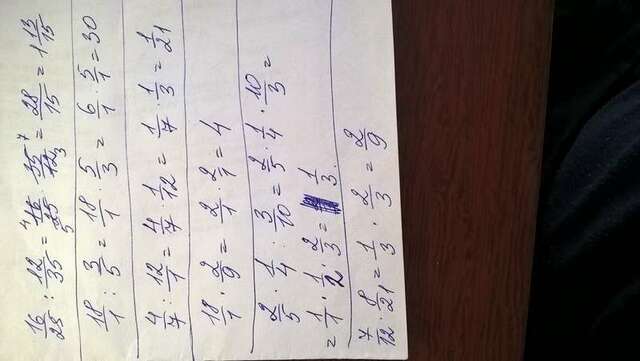 16/25 : 12/35 = 16/25 · 35/12 = 28/15 = 1 13/15
18/1 : 3/5 = 18/1 · 5/3 = 6/1 · 5/1 = 30
4/7 : 12/1 = 4/7 · 1/12 = 1/7 · 1/3 = 1/21
18/1 · 2/9 = 2/1 · 2/1 = 4
2/5 · 1/4 : 3/10 = 2/5 · 1/4 · 10/3 =
= 1/1 · 1/2 · 2/3 = 1/3.
7/12 · 8/21 = 1/3 · 2/3 = 2/9